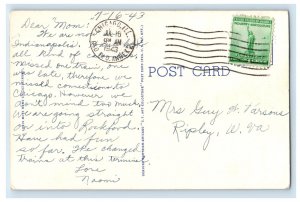 7-16-43
Dear "Mom",
We are now
Indianapolis.
all kind of
missed one train, one
was late, therefore we
missed connections to
Chicago. However we
don't mind too much
we are going straight
on into Rockford.
Have had fun
so far. We changed
trains at this terminal
Love
Naomi
JUL 16
1943
POST CARD
Mrs Guy H. Parsons
Ripley, W. Va